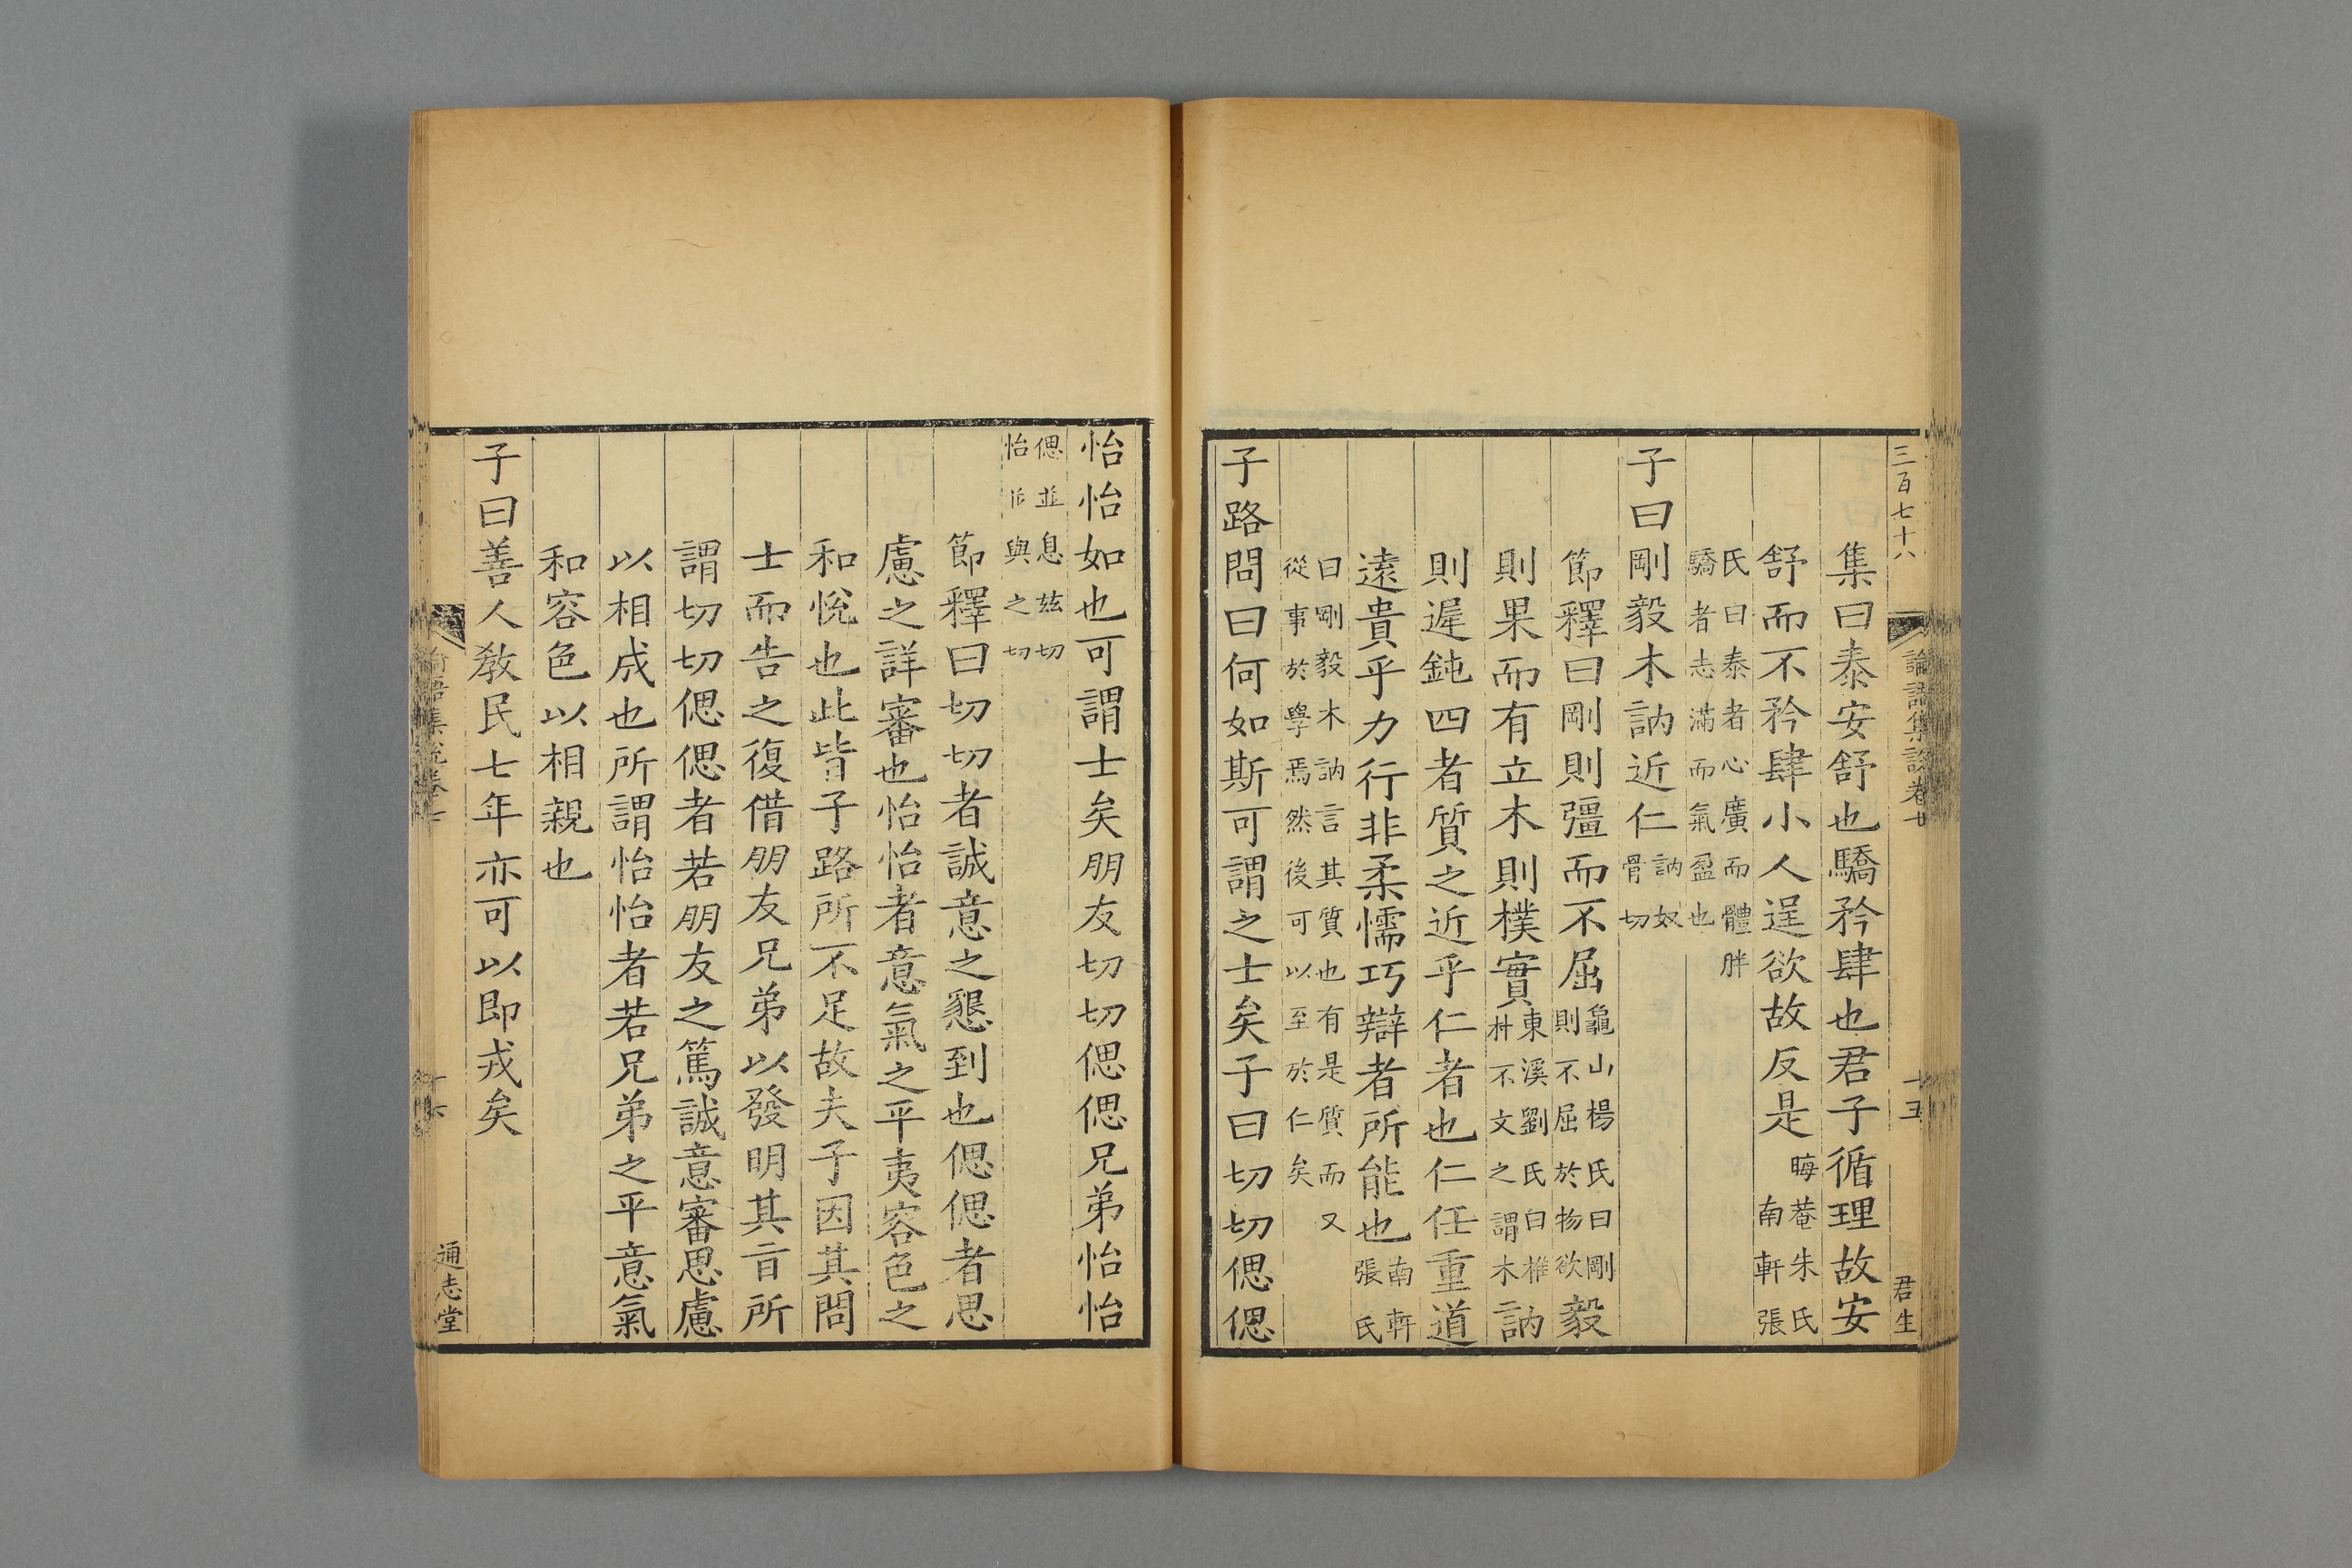 三百七十八
論語集說卷七
十五
君生
集曰泰安舒也驕矜肆也君子循理故安
舒而不矜肆小人逞欲故反是晦菴朱氏南軒張
氏曰泰者心廣而體胖驕者志滿而氣盈也
子曰剛毅木訥近仁訥奴骨切
節釋曰剛則彊而不屈龜山楊氏曰剛則不屈於物欲毅
則果而有立木則樸實東溪劉氏曰椎朴不文之謂木訥
則遲鈍四者質之近乎仁者也仁任重道
遠貴乎力行非柔懦巧辯者所能也南軒張氏
曰剛毅木訥言其質也有是質而又從事於學焉然後可以至於仁矣
子路問曰何如斯可謂之士矣子曰切切偲偲
怡怡如也可謂士矣朋友切切偲偲兄弟怡怡
偲並息兹切怡並與之切
節釋曰切切者誠意之懇到也偲偲者思
慮之詳審也怡怡者意氣之平夷容色之
和悅也此皆子路所不足故夫子因其問
士而告之復借朋友兄弟以發明其㫖所
謂切切偲偲者若朋友之篤誠意審思慮
以相成也所謂怡怡者若兄弟之平意氣
和容色以相親也
子曰善人敎民七年亦可以即戎矣
論語集說卷七
十六
通志堂